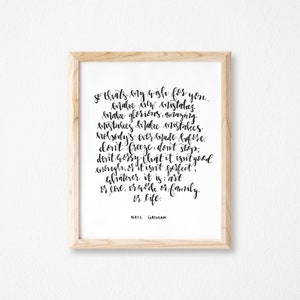 so that's my wish for you
make new mistakes.
make glorious, amazing
mistakes. make mistakes
nobody's ever made before.
don't freeze, don't stop,
don't worry that it isn't good
enough, or it isn't perfect,
whatever it is: art
or love, or work or family
or life.
NEIL GAIMAN